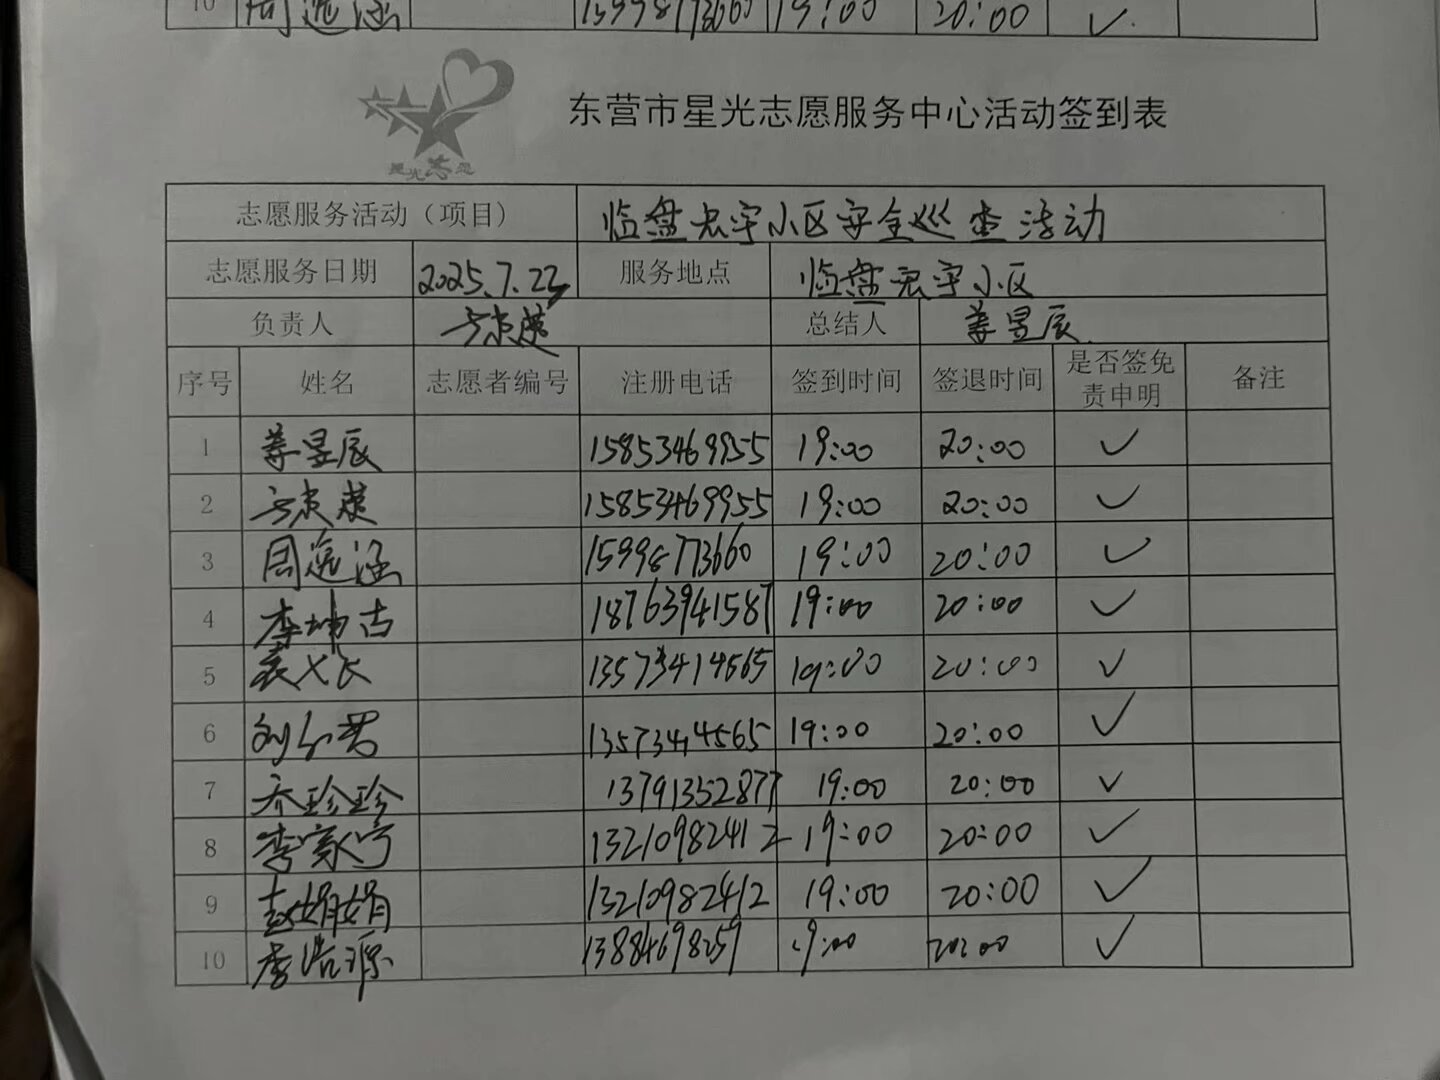 10 周逸涵 15998773660 19:00 20:00 ✓
星光志愿
东营市星光志愿服务中心活动签到表
志愿服务活动（项目） 临盘宏宇小区安全巡查活动
志愿服务日期 2025.7.22 服务地点 临盘宏宇小区
负责人 总结人 姜昱辰
序号 姓名 志愿者编号 注册电话 签到时间 签退时间 是否签免责申明 备注
1 姜昱辰 15853469955 19:00 20:00 ✓
2 15853469955 19:00 20:00 ✓
3 周逸涵 15998773660 19:00 20:00 ✓
4 李坤古 18763941587 19:00 20:00 ✓
5 13573414565 19:00 20:00 ✓
6 13573414565 19:00 20:00 ✓
7 乔珍珍 13791352877 19:00 20:00 ✓
8 李家宁 13210982412 19:00 20:00 ✓
9 赵娟娟 13210982412 19:00 20:00 ✓
10 李浩源 13884698259 19:00 20:00 ✓